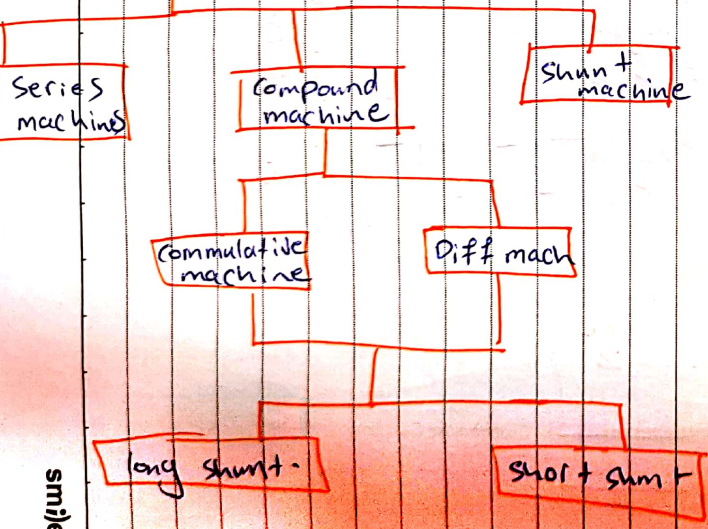 Series
machines
Compound
machine
Shunt
machine
Commulative
machine
Diff mach
long shunt.
short shunt
smile